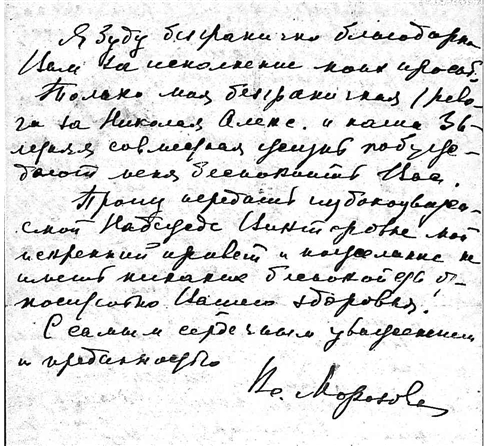 Я буду безгранично благодарна
Вам за исполнение моих просьб.
Только моя безграничная трево-
га за Николая Алекс. и наша 36-
летняя совместная жизнь побужда-
дают меня беспокоить Вас.
Прошу передать глубокоуважае-
мой Надежде Викторовне мой
искренний привет и пожелание не
иметь никаких беспокойств от-
носительно Вашего здоровья!
С самым сердечным уважением
и преданностью
Кс. Морозова